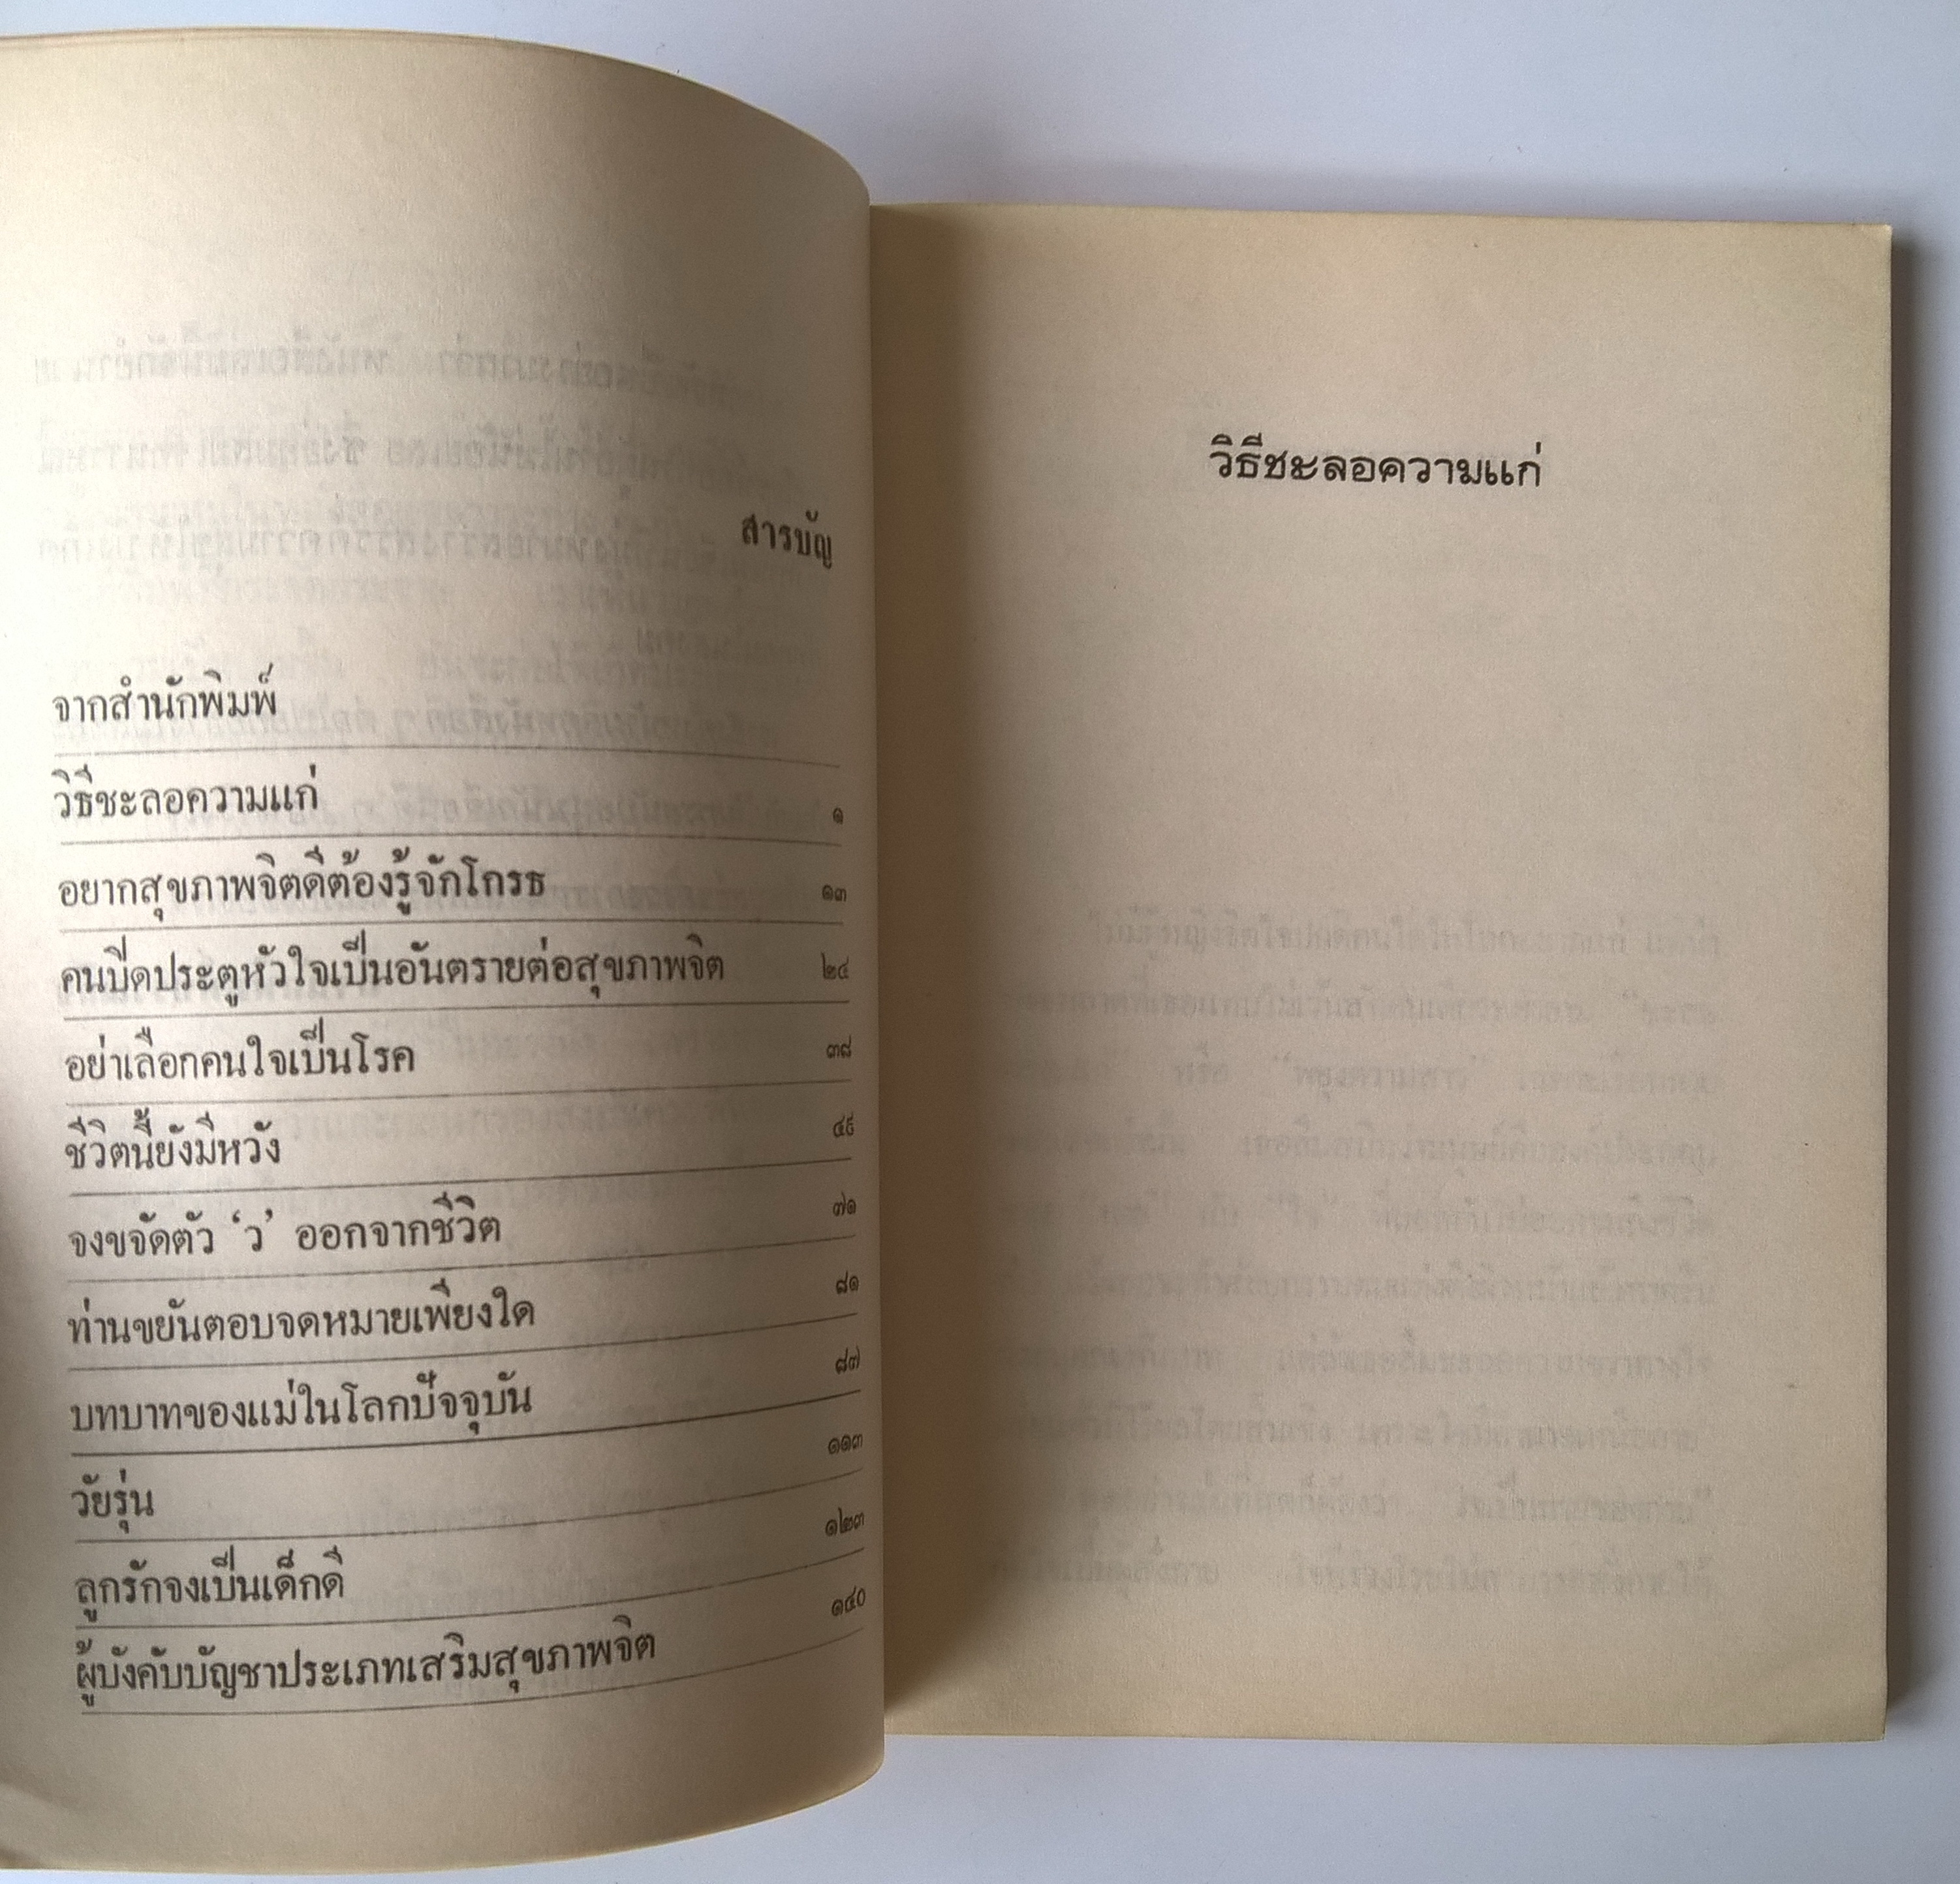 สารบัญ
จากสำนักพิมพ์
วิธีชะลอความแก่ ๑
อยากสุขภาพจิตดีต้องรู้จักโกรธ ๑๓
คนปิดประตูหัวใจเป็นอันตรายต่อสุขภาพจิต ๒๔
อย่าเลือกคนใจเป็นโรค ๓๘
ชีวิตนี้ยังมีหวัง ๔๕
จงขจัดตัว ‘ว’ ออกจากชีวิต ๗๑
ท่านขยันตอบจดหมายเพียงใด ๘๑
บทบาทของแม่ในโลกปัจจุบัน ๘๗
วัยรุ่น ๑๑๓
ลูกรักจงเป็นเด็กดี ๑๒๓
ผู้บังคับบัญชาประเภทเสริมสุขภาพจิต ๑๔๐
วิธีชะลอความแก่